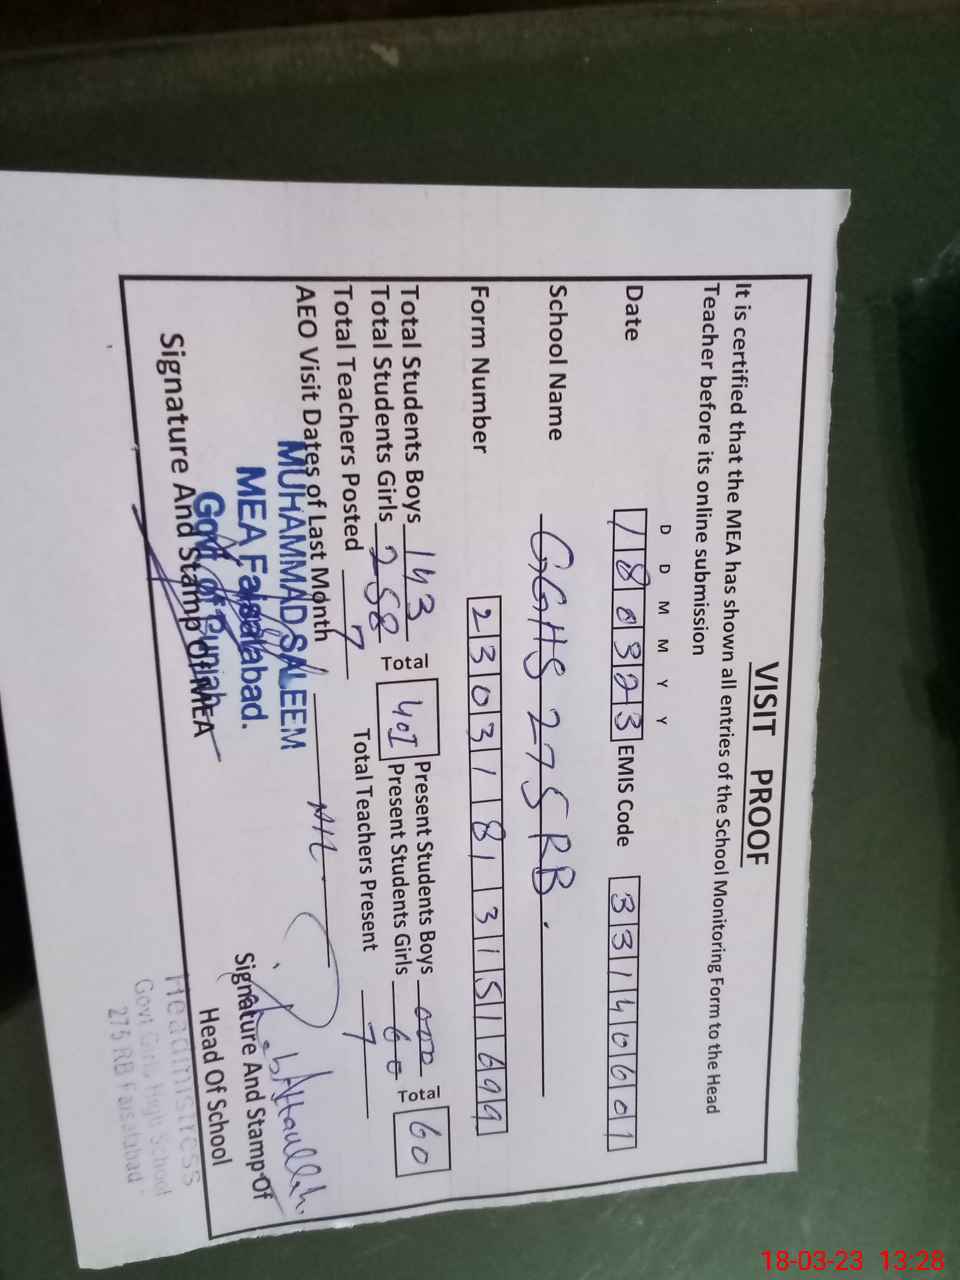 VISIT PROOF
It is certified that the MEA has shown all entries of the School Monitoring Form to the Head
Teacher before its online submission
D D M M Y Y
Date 180323 EMIS Code 33140601
School Name GGHS 275 RB.
Form Number 23031813151699
Total Students Boys 143 Total 401 Present Students Boys 000 Total 60
Total Students Girls 258 Present Students Girls 60
Total Teachers Posted 7 Total Teachers Present 7
AEO Visit Dates of Last Month
MUHAMMAD SALEEM
MEA Faisalabad.
Govt of Punjab
Signature And Stamp Of MEA
Signature And Stamp Of
Head Of School
Headmistress
Govt Girls High School
275 RB Faisalabad
18-03-23 13:28